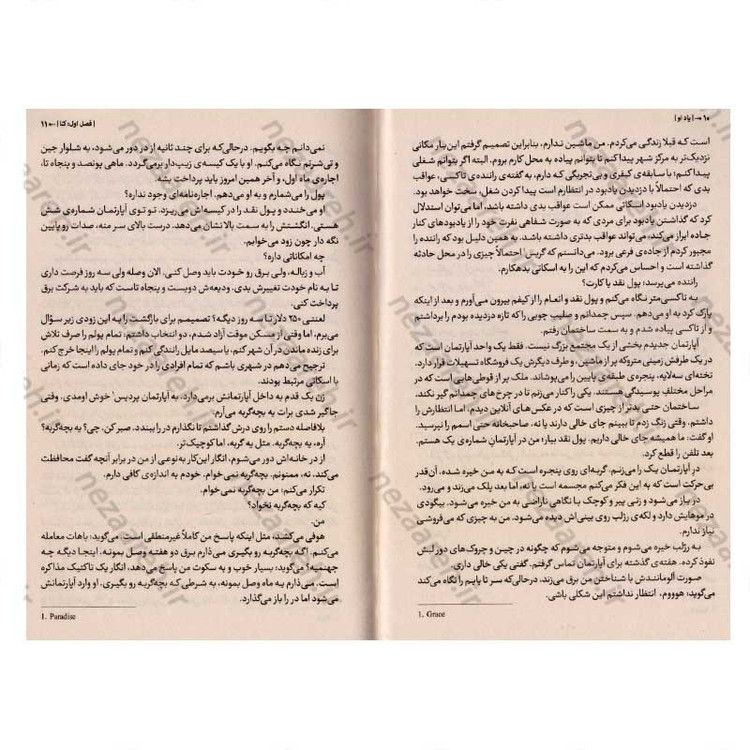 ۱۰ ← | یاد او |
است که قبلا زندگی می‌کردم. من ماشین ندارم، بنابراین تصمیم گرفتم این بار مکانی
نزدیک‌تر به مرکز شهر پیدا کنم تا بتوانم پیاده به محل کارم بروم. البته اگر بتوانم شغلی
پیدا کنم؛ با سابقه‌ی کیفری و بی‌تجربگی که دارم، به گفته‌ی راننده‌ی تاکسی، عواقب
بدی که احتمالاً با دزدیدن یادبود در انتظارم است پیدا کردن شغل، سخت خواهد بود.
دزدیدن یادبود اسکاتی ممکن است عواقب بدی داشته باشد، اما می‌توان استدلال
کرد که گذاشتن یادبود برای مردی که به صورت شفاهی نفرت خود را از یادبودهای کنار
جاده ابراز می‌کند، می‌تواند عواقب بدتری داشته باشد. به همین دلیل بود که راننده را
مجبور کردم از جاده‌ی فرعی برود. می‌دانستم که گریس۱ احتمالاً چیزی را در محل حادثه
گذاشته است و احساس می‌کردم که این را به اسکاتی بدهکارم.
راننده می‌پرسد: پول نقد یا کارت؟
به تاکسی‌متر نگاه می‌کنم و پول نقد و انعام را از کیفم بیرون می‌آورم و بعد از اینکه
پارک کرد به او می‌دهم. سپس چمدانم و صلیب چوبی را که تازه دزدیده بودم را برداشتم
و از تاکسی پیاده شدم و به سمت ساختمان رفتم.
آپارتمان جدیدم بخشی از یک مجتمع بزرگ نیست. فقط یک واحد آپارتمان است که
در یک طرفش زمینی متروکه پر از ماشین، و طرف دیگرش یک فروشگاه تسهیلات قرار دارد.
تخته‌ای سه‌لایه، پنجره‌ی طبقه‌ی پایین را می‌پوشاند. ملک پر از قوطی‌هایی است که در
مراحل مختلف پوسیدگی هستند. یکی را کنار می‌زنم تا در چرخ‌های چمدانم گیر نکند.
ساختمان حتی بدتر از چیزی است که در عکس‌های آنلاین دیدم، اما انتظارش را
داشتم. وقتی زنگ زدم تا ببینم جای خالی دارند یا نه، صاحبخانه حتی اسمم را نپرسید.
او گفت: ما همیشه جای خالی داریم. پول نقد بیار؛ من در آپارتمان شماره‌ی یک هستم.
بعد تلفن را قطع کرد.
در آپارتمان یک را می‌زنم. گربه‌ای روی پنجره است که به من خیره شده، آن‌قدر
بی‌حرکت است که به این فکر می‌کنم مجسمه است یا نه، اما بعد پلک می‌زند و می‌رود.
در باز می‌شود و زنی پیر و کوچک با نگاهی ناراضی به من خیره می‌شود. بیگودی
در موهایش دارد و لکه‌ی رژلب روی بینی‌اش دیده می‌شود. من به چیزی که می‌فروشی
نیاز ندارم.
به رژلب خیره می‌شوم و متوجه می‌شوم که چگونه در چین و چروک‌های دور لبش
نفوذ کرده. هفته‌ی گذشته برای آپارتمان تماس گرفتم. گفتی یکی خالی داری.
صورت آلومانندش با شناختن من برق می‌زند، درحالی‌که سر تا پایم را نگاه می‌کند
می‌گوید: هوووم، انتظار نداشتم این شکلی باشی.
1. Grace
| فصل اول: کنا | → ۱۱
نمی‌دانم چه بگویم. درحالی‌که برای چند ثانیه از در دور می‌شود، به شلوار جین
و تی‌شرتم نگاه می‌کنم. او با یک کیسه‌ی زیپ‌دار برمی‌گردد. ماهی پونصد و پنجاه تا،
اجاره‌ی ماه اول، و آخر همین امروز باید پرداخت بشه.
پول را می‌شمارم و به او می‌دهم. اجاره‌نامه‌ای وجود نداره؟
او می‌خندد و پول نقد را در کیسه‌اش می‌ریزد. تو توی آپارتمان شماره‌ی شش
هستی. انگشتش را به سمت بالا نشان می‌دهد. درست بالای سر منه، صدات رو پایین
نگه دار چون زود می‌خوابم.
چه امکاناتی داره؟
آب و زباله، ولی برق رو خودت باید وصل کنی. الان وصله ولی سه روز فرصت داری
تا به نام خودت تغییرش بدی. ودیعه‌ش دویست و پنجاه تاست که باید به شرکت برق
پرداخت کنی.
لعنتی ۲۵۰ دلار تا سه روز دیگه؟ تصمیمم برای بازگشت را به این زودی زیر سؤال
می‌برم، اما وقتی از مسکن موقت آزاد شدم، دو انتخاب داشتم: تمام پولم را صرف تلاش
برای زنده ماندن در آن شهر کنم، یا سیصد مایل رانندگی کنم و تمام پولم را اینجا خرج کنم.
ترجیح می‌دهم در شهری باشم که تمام افرادی را در خود جای داده است که زمانی
با اسکاتی مرتبط بودند.
زن یک قدم به داخل آپارتمانش برمی‌دارد. به آپارتمان پردیس۱ خوش اومدی. وقتی
جاگیر شدی برات یه بچه‌گربه می‌آرم.
بلافاصله دستم را روی درش گذاشتم تا نگذارم در را ببندد. صبر کن. چی؟ یه بچه‌گربه؟
آره، یه بچه‌گربه. مثل یه گربه، اما کوچیک‌تر.
از در خانه‌اش دور می‌شوم، انگار این کار به‌نوعی از من در برابر آنچه گفت محافظت
می‌کند، نه، ممنونم. بچه‌گربه نمی‌خوام. خودم به اندازه‌ی کافی دارم.
تکرار می‌کنم: من بچه‌گربه نمی‌خوام.
کیه که بچه‌گربه نخواد؟
من.
هوفی می‌کشد، مثل اینکه پاسخ من کاملاً غیرمنطقی است. می‌گوید: باهات معامله
می‌کنم. اگه بچه‌گربه رو بگیری می‌ذارم برق دو هفته وصل بمونه. اینجا دیگه چه
جهنمیه؟ می‌گوید: بسیار خوب و به سکوت من پاسخ می‌دهد، انگار یک تاکتیک مذاکره
است. می‌ذارم یه ماه وصل بمونه، به شرطی که بچه‌گربه رو بگیری. او وارد آپارتمانش
می‌شود اما در را باز می‌گذارد.
1. Paradise
nezaareh.ir